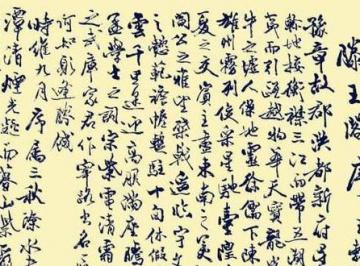 滕王閣序
豫章故郡洪都新府星
軫地接衡廬襟三江而帶五湖
蠻荊而引甌越物華天寶龍光
牛之墟人傑地靈徐孺下陳
雄州霧列俊采星馳臺隍
夏之交賓主盡東南之美
閻公之雅望棨戟遙臨宇文
之懿範襜帷暫駐十旬休假
雲千里逢迎高朋滿座騰
孟學士之詞宗紫電清霜
之武庫家君作宰路出名區
何知躬逢勝餞
時維九月序屬三秋潦水
潭清煙光凝而暮山紫